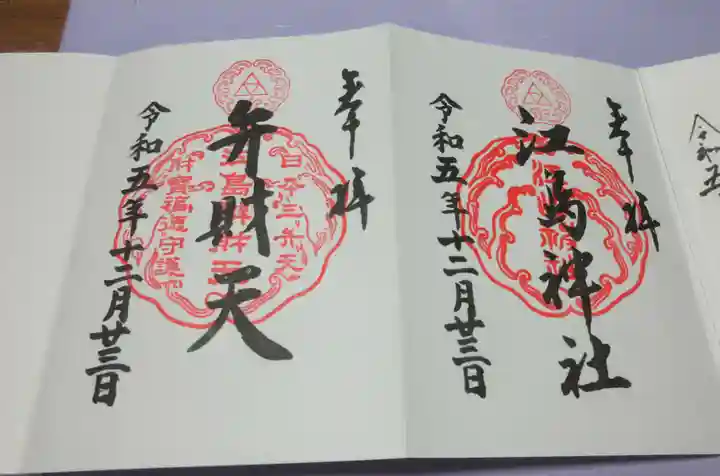 奉拝
江島神社
令和五年十二月廿三日
奉拝
弁財天
日本三弁天
江島弁財天
財宝福徳守護
令和五年十二月廿三日
令和五